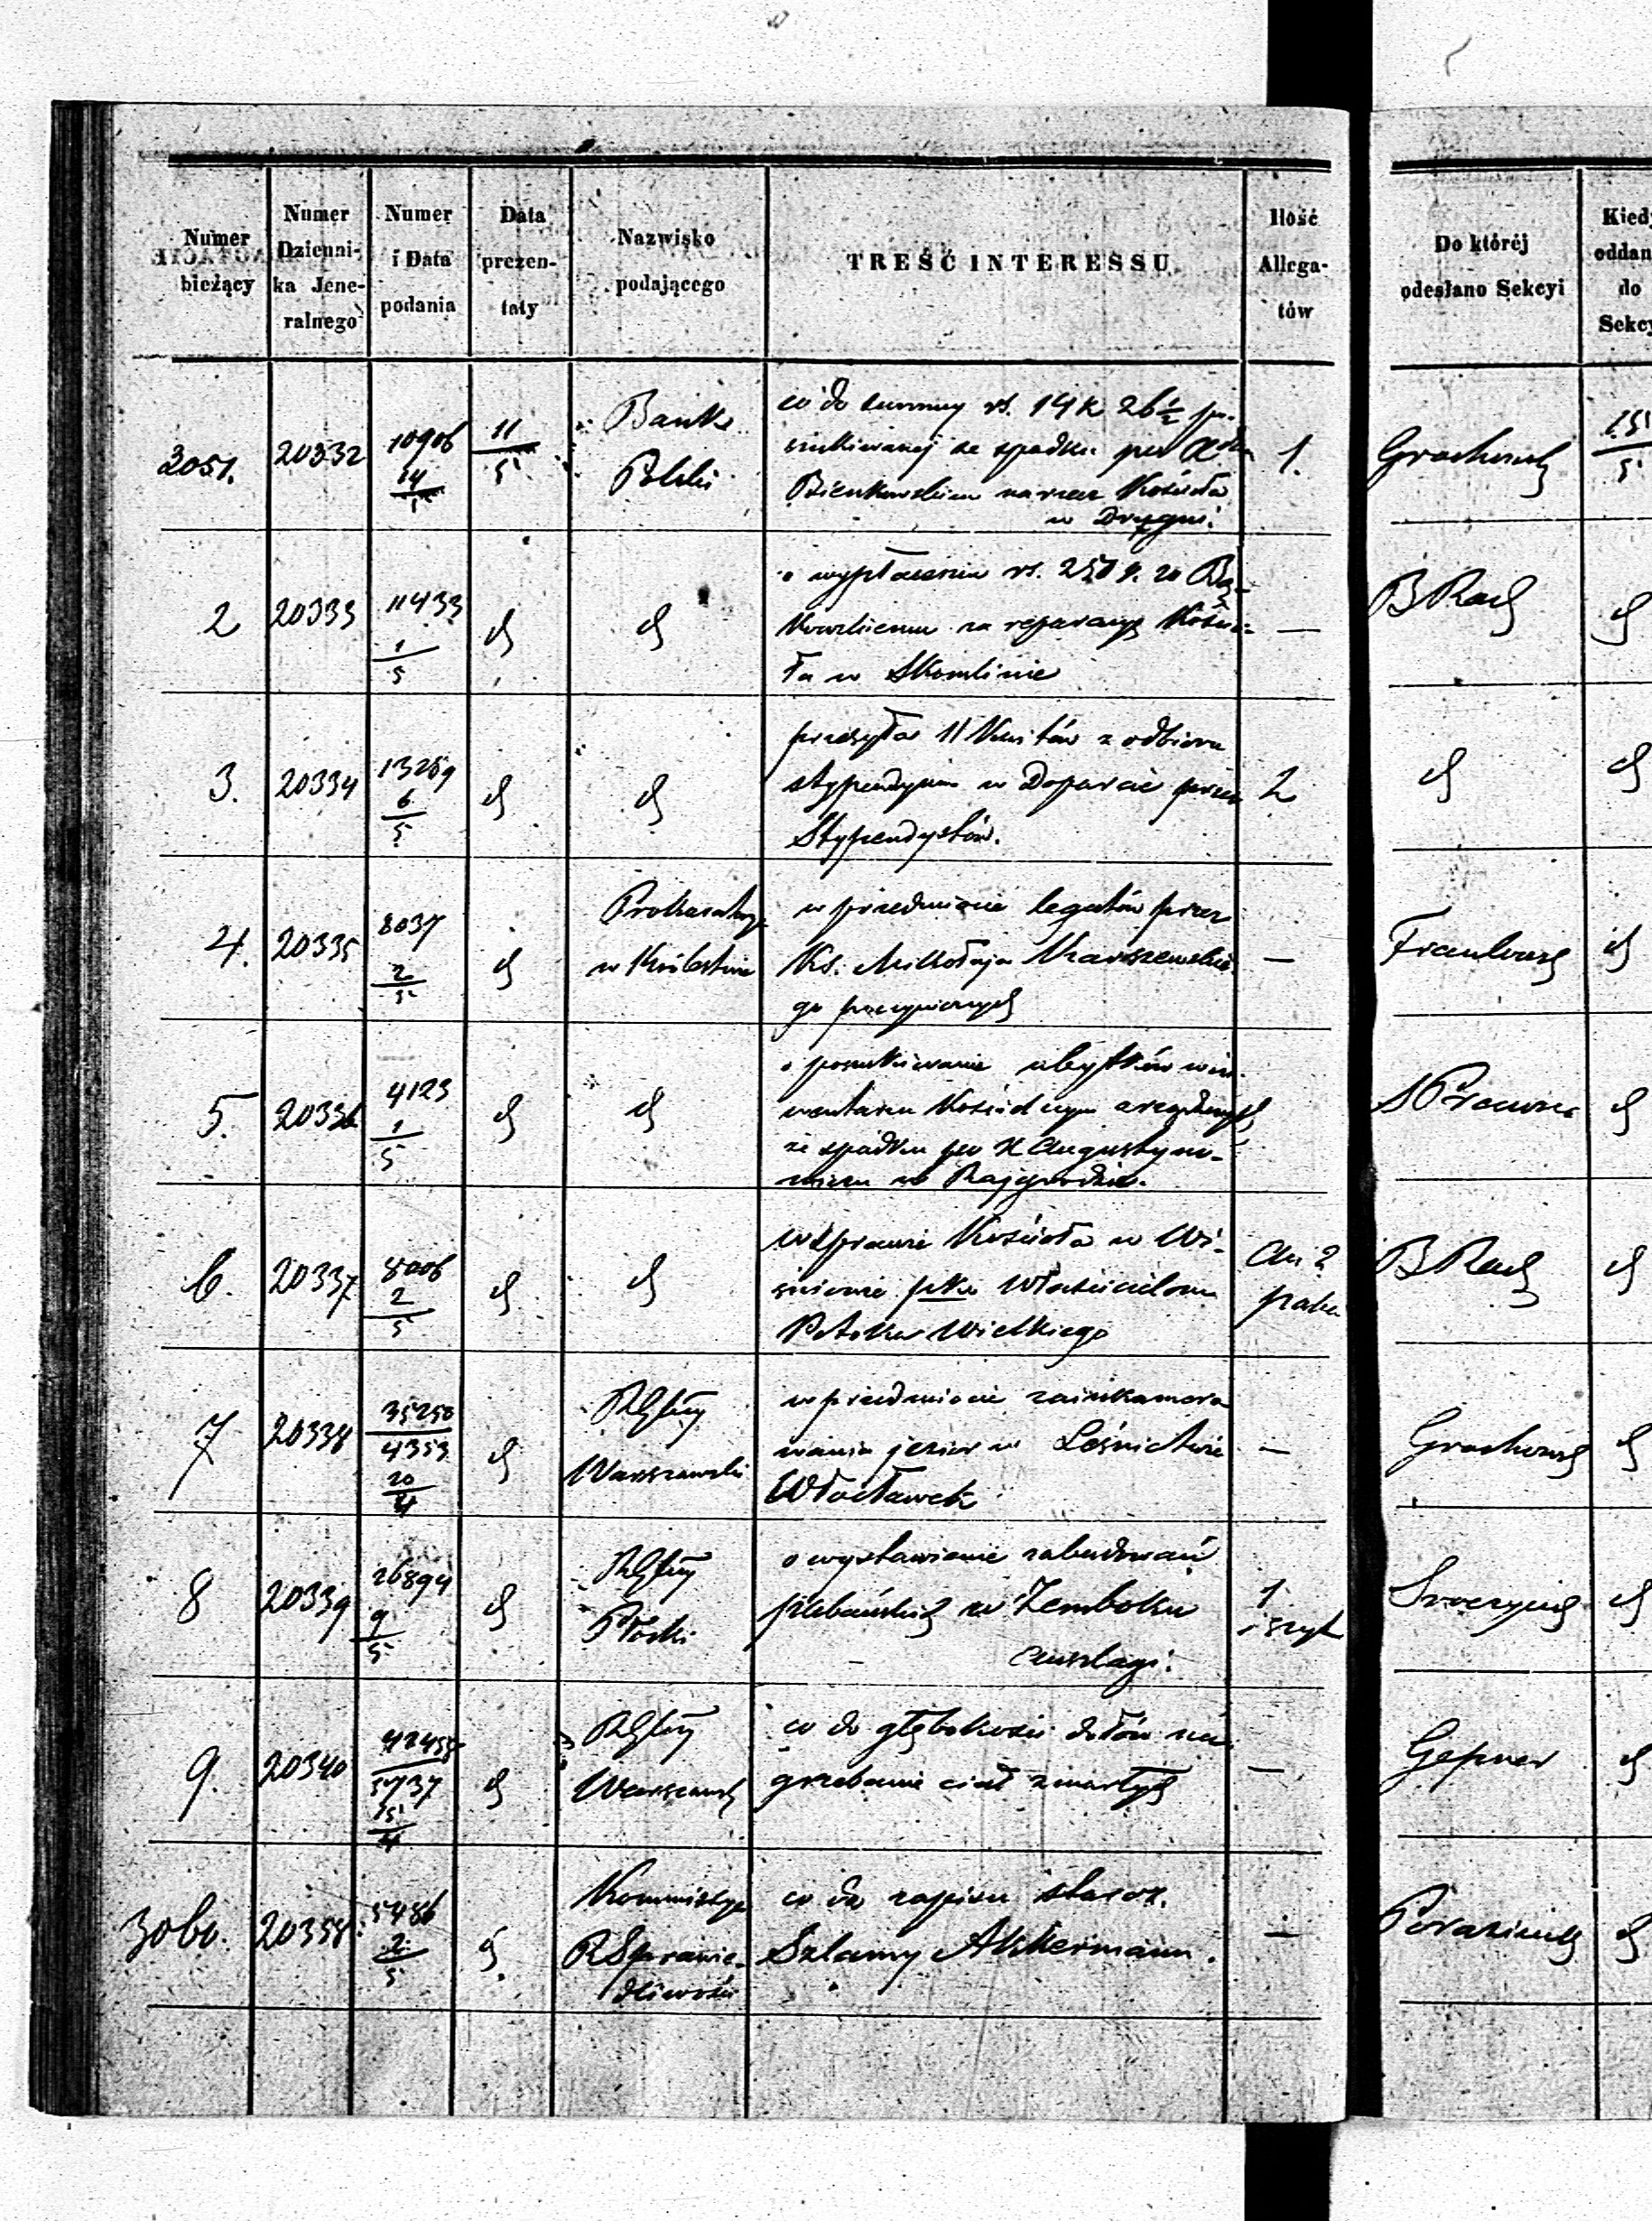 Numer bieżący
Numer Dzienni-
ka Jene-
ralnego
Numer
i Data
podania
Data
prezen-
taty
Nazwisko
podającego
TREŚĆ INTERESSU
Ilość
Allega-
tów
Do któréj
odesłano Sekcyi
Kiedy
oddan
do
Sekcy
3051.
20332
10906
14
5
11
5
Bank
Polski
co do summy rs. 14 k 26½ po-
szukiwanéj ze spadku po
Bienkowskim na rzecz Kościoła
w
1.
Grochowsk
15
5
2
20333
11433
1
5
d
d
o wypłacenie rs. 250 k. 20
kowskiemu za reparacyę Kościo-
ła w Skomlinie
—
B Rach
d
3.
20334
13289
6
5
d
d
przesyła 11 Kwitów z odbioru
stypendyum w Dorpacie przez
Stypendystów.
2
d
d
4.
20335
8037
2
5
d
Prokuratorya
w Królestwie
w przedmiocie legatów przez
Ks. Mikołaja Karszewskie-
go poczynionych
—
d
5.
20336
4123
1
5
d
d
o poszukiwanie ubytków w in-
wentarzu Kościelnym
ze spadku po X Augustyno-
wiczu w Rajgrodzie.
d
6.
20337
8006
2
5
d
d
w sprawie Kościoła w Wi-
śniewie pko Właścicielom
Potoka Wielkiego
B Rach
d
7
20338
35250
4353
20
4
d
RGbny
Warszawski
w przedmiocie zainkamero-
wania jezior w Leśnictwie
Włocławek
—
Grochowsk
d
8
20339
26894
9
5
d
RGbny
Płocki
o wystawienie zabudowań
plebańskich w Zemboku
1
d
9.
20340
42458
5737
15
4
d
RGbny
Warszawsk
co do głębokości dołów na
grzebanie ciał zmarłych
—
Gepner
d
3060.
20358
5486
2
5
d
Kommissya
RSprawie-
dliwości
co do zapisu staroz.
Szlamy Akkermann.
—
d